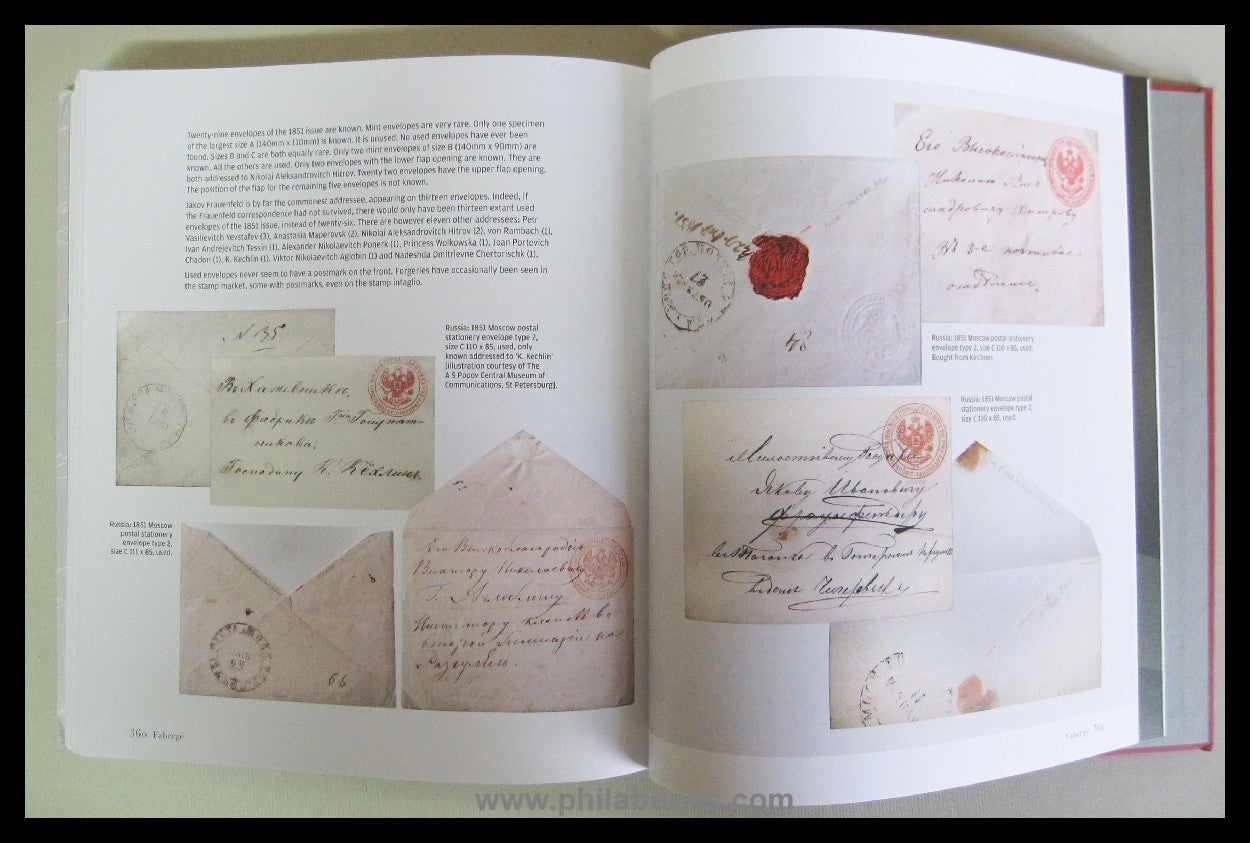 Twenty-nine envelopes of the 1851 issue are known. Mint envelopes are very rare. Only one specimen
of the largest size A (140mm x 110mm) is known. It is unused. No used envelopes have ever been
found. Sizes B and C are both equally rare. Only two mint envelopes of size B (140mm x 90mm) are
known. All the others are used. Only two envelopes with the lower flap opening are known. They are
both addressed to Nikolai Aleksandrovitch Hitrov. Twenty two envelopes have the upper flap opening.
The position of the flap for the remaining five envelopes is not known.
Jakov Frauenfeld is by far the commonest addressee, appearing on thirteen envelopes. Indeed, if
the Frauenfeld correspondence had not survived, there would only have been thirteen extant used
envelopes of the 1851 issue, instead of twenty-six. There are however eleven other addressees: Petr
Vasilievitch Yevstafev (3), Anastasia Maperovsk (2), Nikolai Aleksandrovitch Hitrov (2), von Rambach (1),
Ivan Andrejevitch Tessin (1), Alexander Nikolaevitch Ponerk (1), Princess Wolkowska (1), Joan Portevich
Chadon (1), K. Kechlin (1), Viktor Nikolaevitch Aglobin (1) and Nadeshda Dmitrievne Chertorischk (1).
Used envelopes never seem to have a postmark on the front. Forgeries have occasionally been seen in
the stamp market, some with postmarks, even on the stamp intaglio.
N. 135
Въ Хамовникахъ,
въ Фабрику
Господину К. Кёхлинъ.
Russia: 1851 Moscow postal
stationery envelope type 2,
size C 110 x 85, used, only
known addressed to 'K. Kechlin'
[illustration courtesy of The
A S Popov Central Museum of
Communications, St Petersburg].
Russia: 1851 Moscow
postal stationery
envelope type 2,
size C 111 x 85, used.
68
Его Высокоблагородію
Виктору Николаевичу
второй Гимназіи
Разгуляѣ.
360 Fabergé
27
Его Высокоблагор.
Николаю Алек
сандровичу Хитрову
Въ 3-е почтовое
отдѣленіе.
Russia: 1851 Moscow postal stationery
envelope type 2, size C 110 x 85, used.
Bought from Kirchner.
Russia: 1851 Moscow postal
stationery envelope type 2,
size C 110 x 85, used.
Милостивому Государю
Якову Ивановичу
Фрауенфельдеру
Fabergé 361